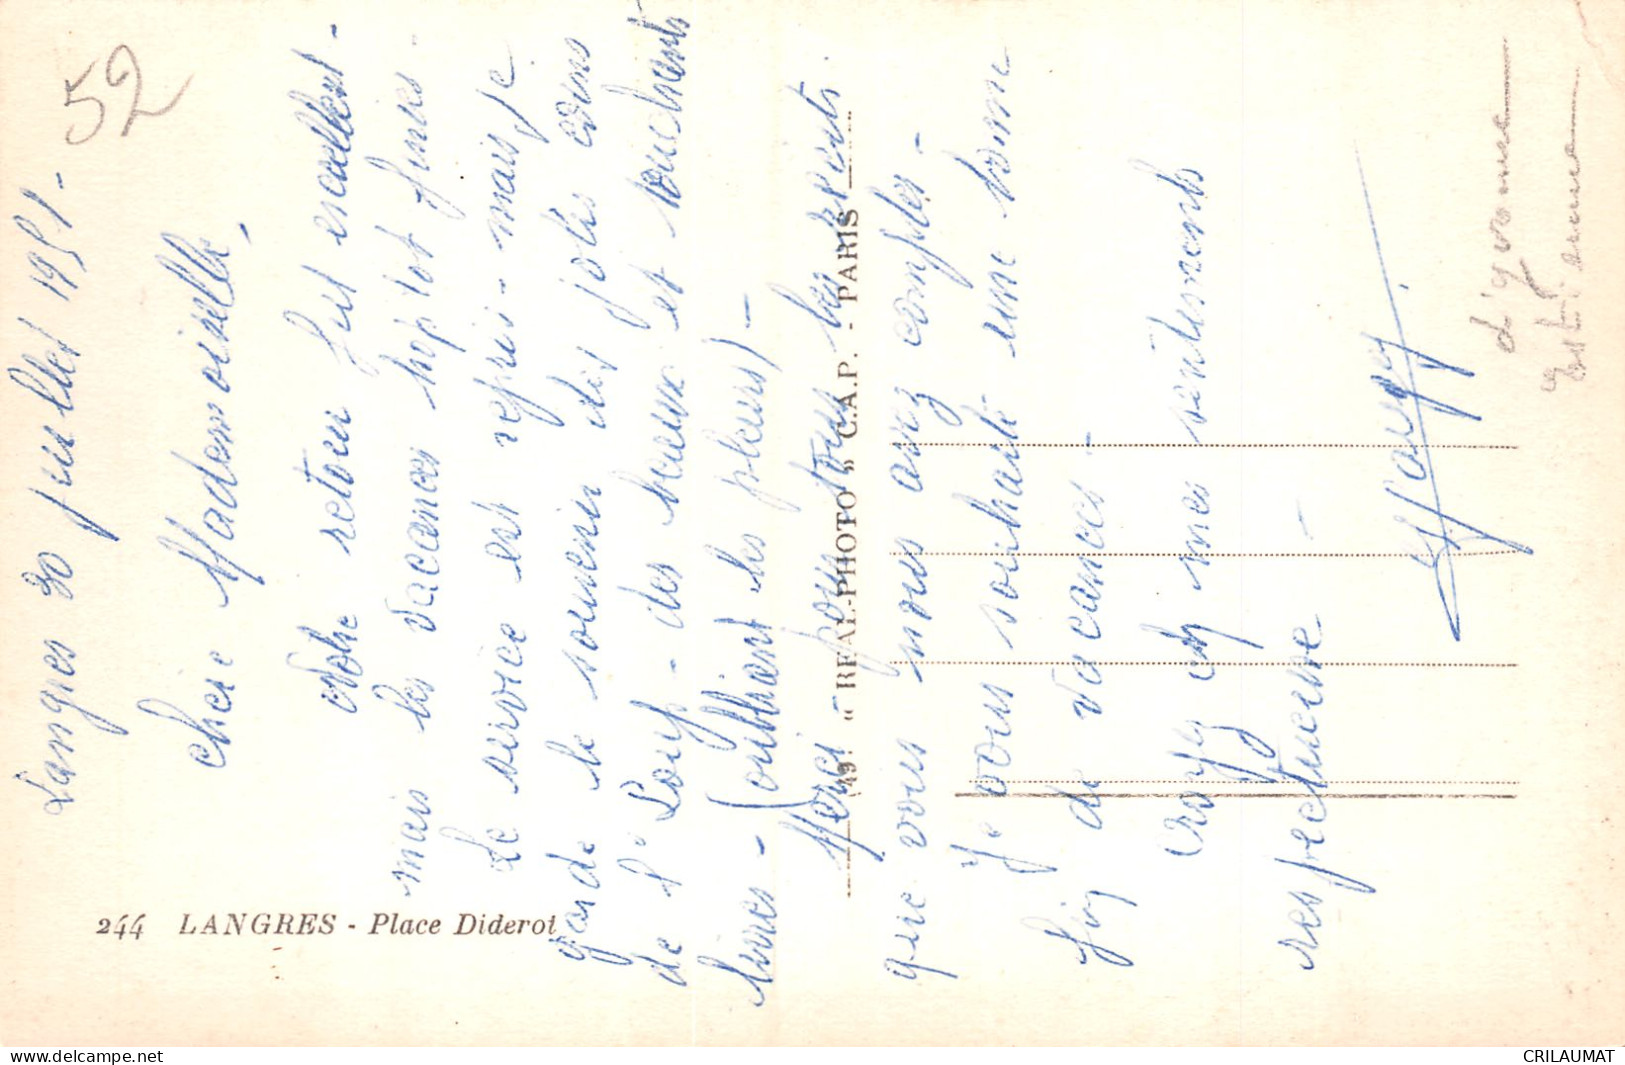 52
Langres 30 juillet 1951 -
Chère Mademoiselle,
Votre retour fut excellent -
mais les vacances trop tôt finies -
Le service est repris - mais je
garde le souvenir des jolis coins
de l' Loup - des beaux et touchants
livres - (oubliant les pleurs) -
Merci pour tous les
que vous nous avez comptés -
Je vous souhaite une bonne
fin de vacances -
croyez en mes sentiments
respectueux -
244 LANGRES - Place Diderot
49 " REAL-PHOTO " C.A.P. - PARIS
delcampe.net
CRILAUMAT